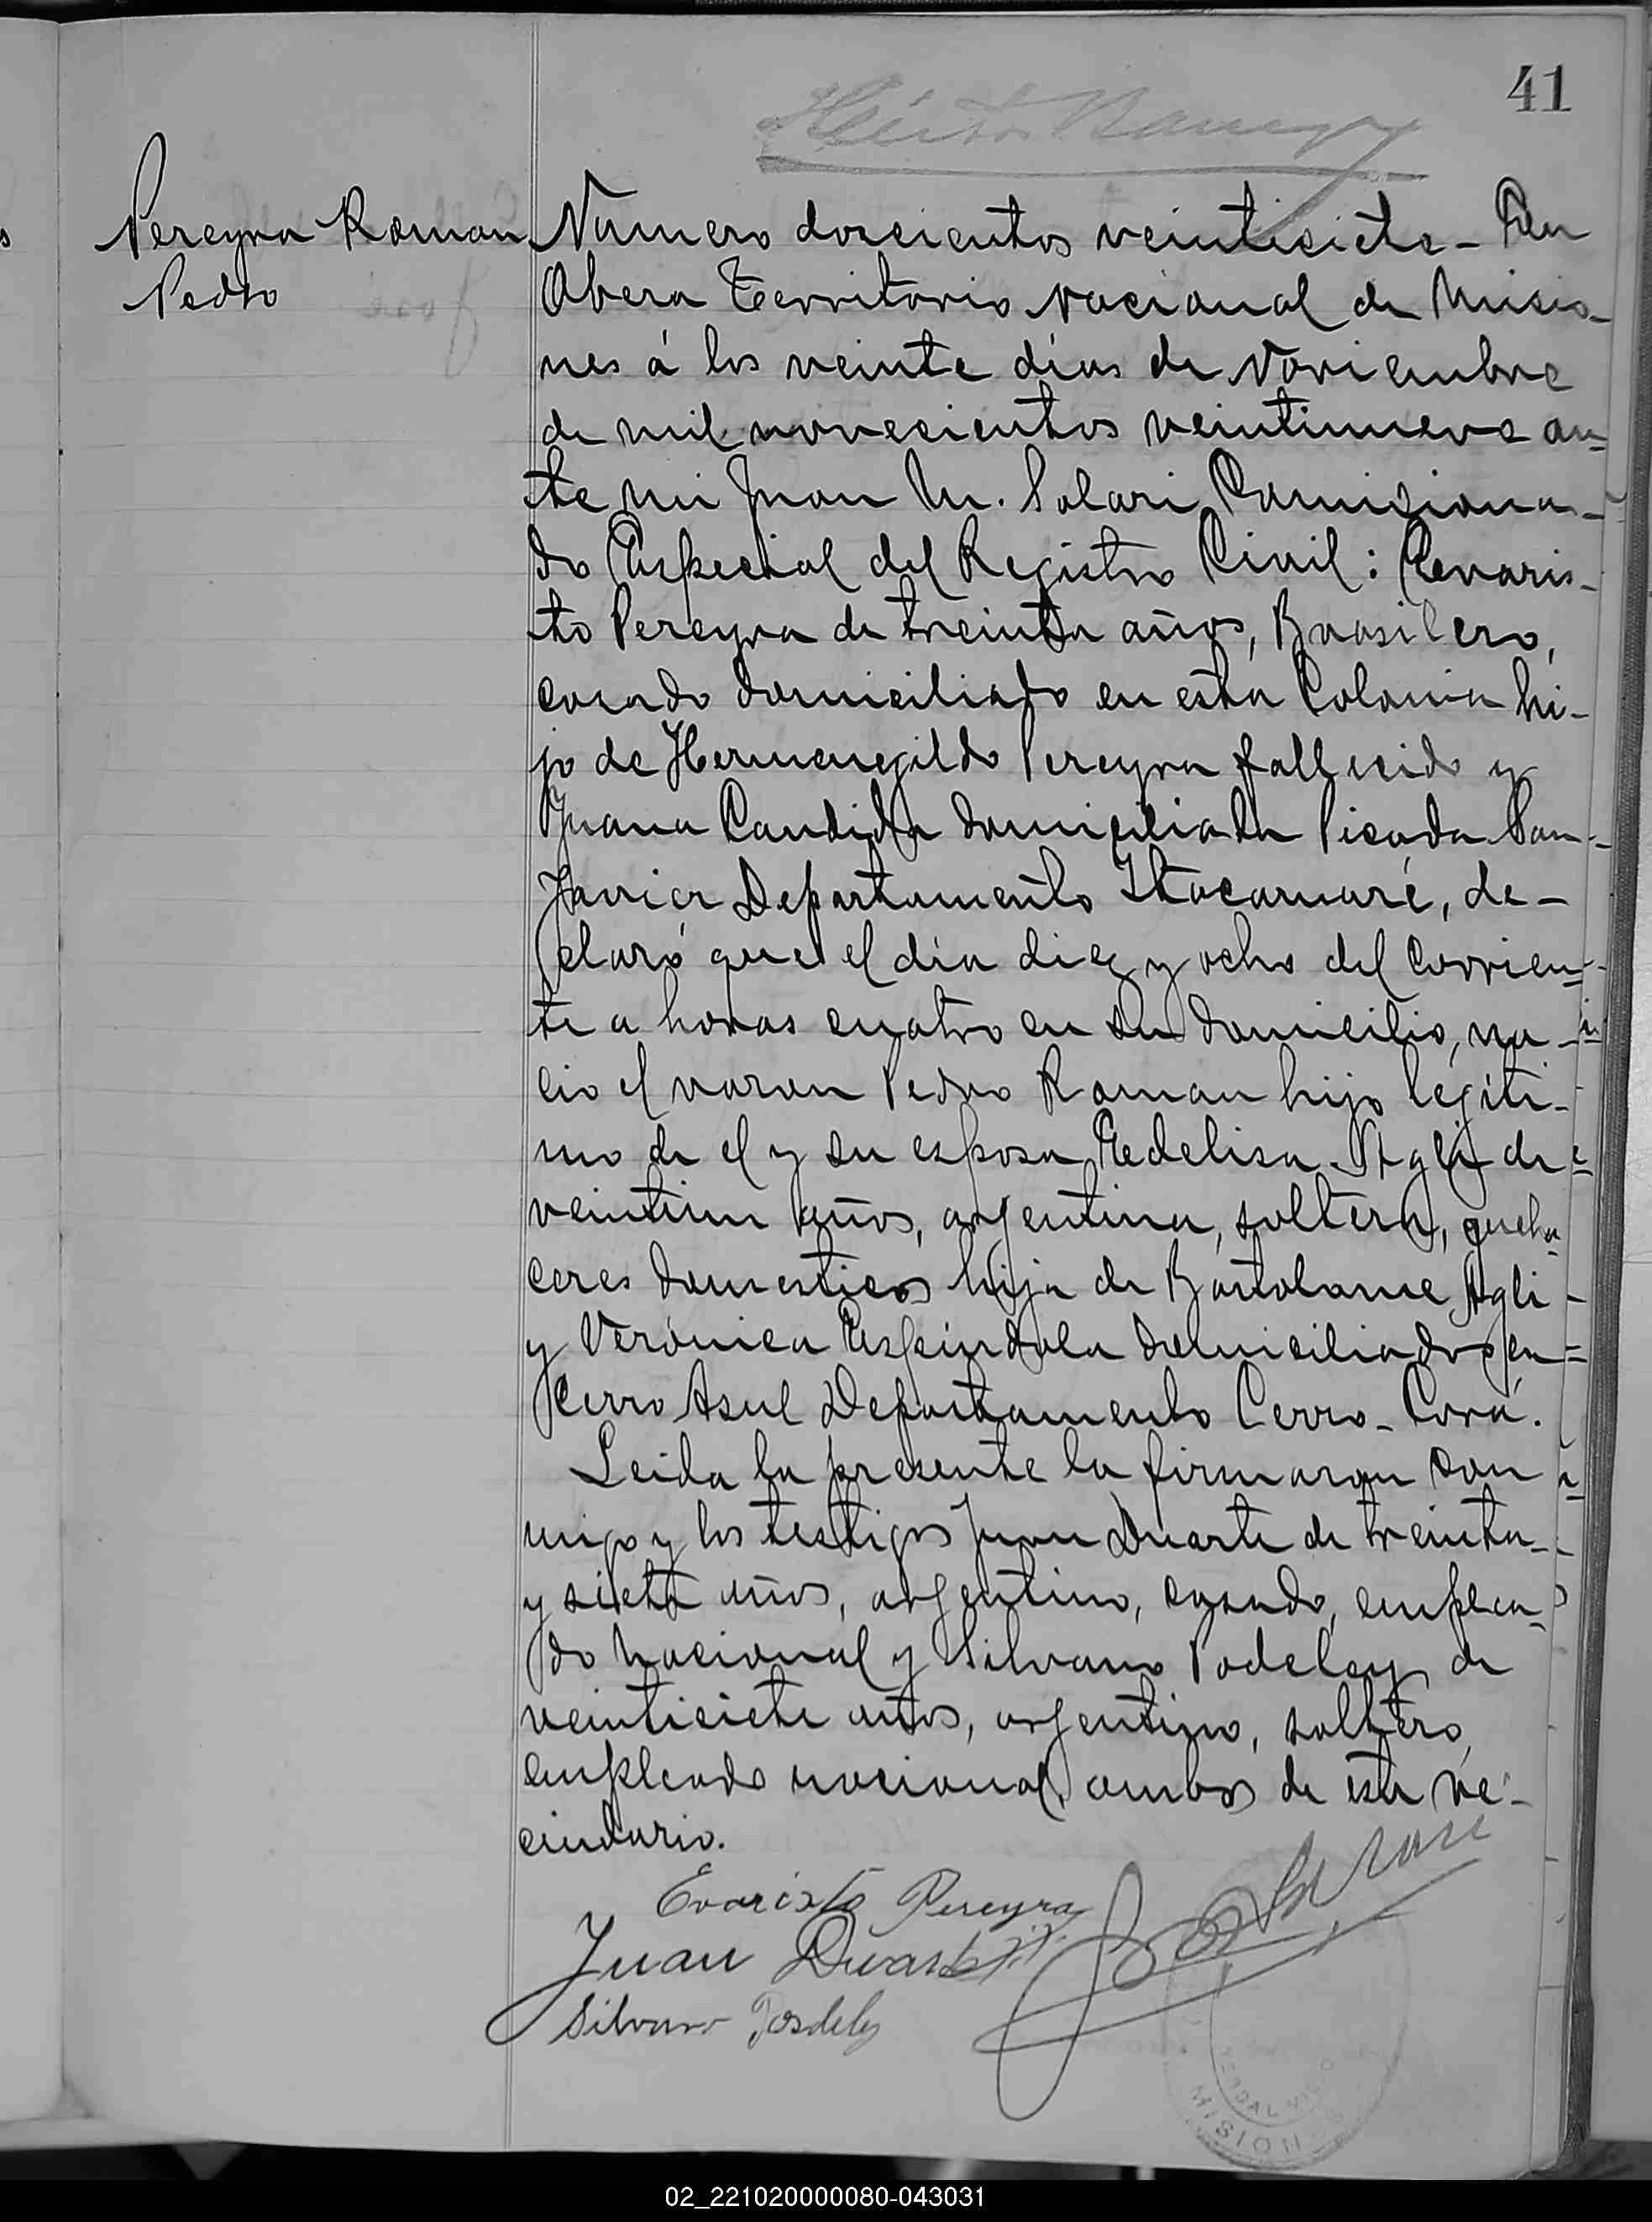 41
Pereyra Roman
Pedro
Numero doscientos veinticiete - En
Obera Territorio Nacional de Misio-
nes á los veinte días de Noviembre
de mil novecientos veintinueve an-
te mi Juan M. Solari Comisiona-
do Especial del Registro Civil: Evaris-
to Pereyra de treinta años, Brasilero,
casado domiciliado en esta Colonia hi-
jo de Hermenegildo Pereyra fallecido y
Juana Candida domiciliada Picada San
Javier Departamento Itacaruaré, de-
claró que el día diez y ocho del corrien-
te a horas cuatro en su domicilio, na-
cio el varon Pedro Roman hijo legiti-
mo de el y su esposa Edelisa Agli de
veintiun años, argentina, soltera, queha-
ceres domesticos hija de Bartolome Agli
y Verónica Espíndola domiciliados en
Cerro Asul Departamento Cerro-Corá.
Leida la presente la firmaron con
migo y los testigos Juan Duarte de treinta
y siete años, argentino, casado, emplea-
do nacional y Silvano Podeley de
veinticiete años, argentino, soltero,
empleado nacional, ambos de esta ve-
cindario.
Evaristo Pereyra
Juan Duarte
Silvano Podeley
MISION
02_221020000080-043031